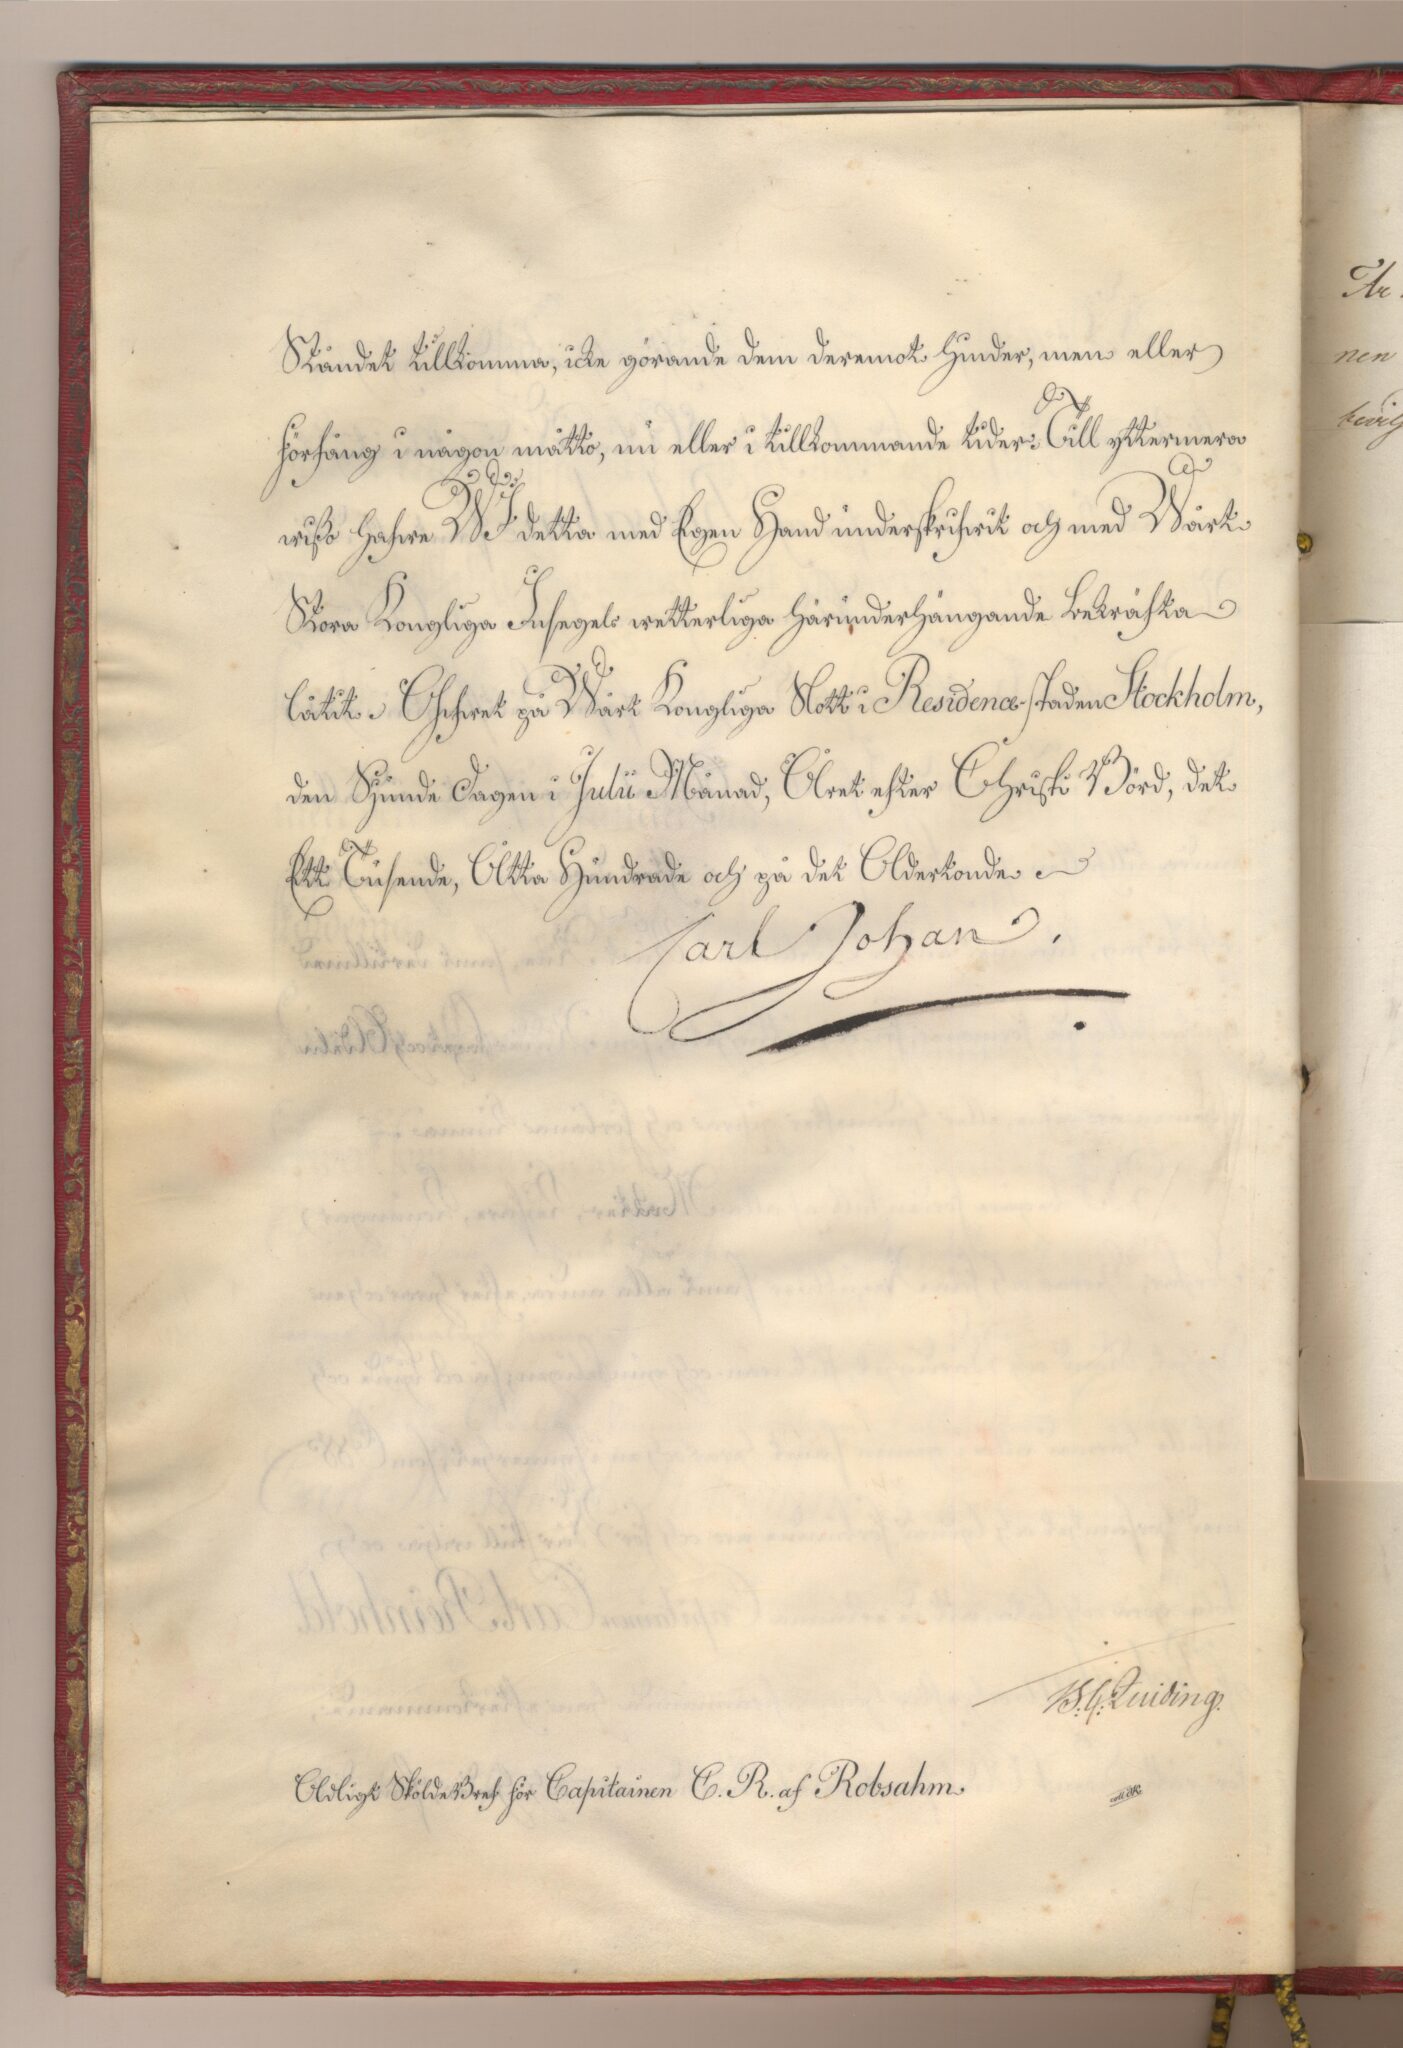 Ståndet tillkomma, icke görande dem deremot hinder, men eller
förfång i någon måtto, nu eller i tillkommande tider: Till yttermera
wisso hafwe WJ detta med Egen Hand underskrifwit och med Wårt
Stora Kongliga Insegels wetterliga härunderhängande bekräfta
låtit. Gifwet på Wårt Kongliga Slott i Residence-staden Stockholm,
den Siunde Dagen i Julii Månad, Året efter Christi Börd, det
Ett Tusende, Åtta Hundrade och på det Adertonde.
Carl Johan.
Quiding.
Adligt Sköldebref för Capitainen C. R. af Robsahm.
nen